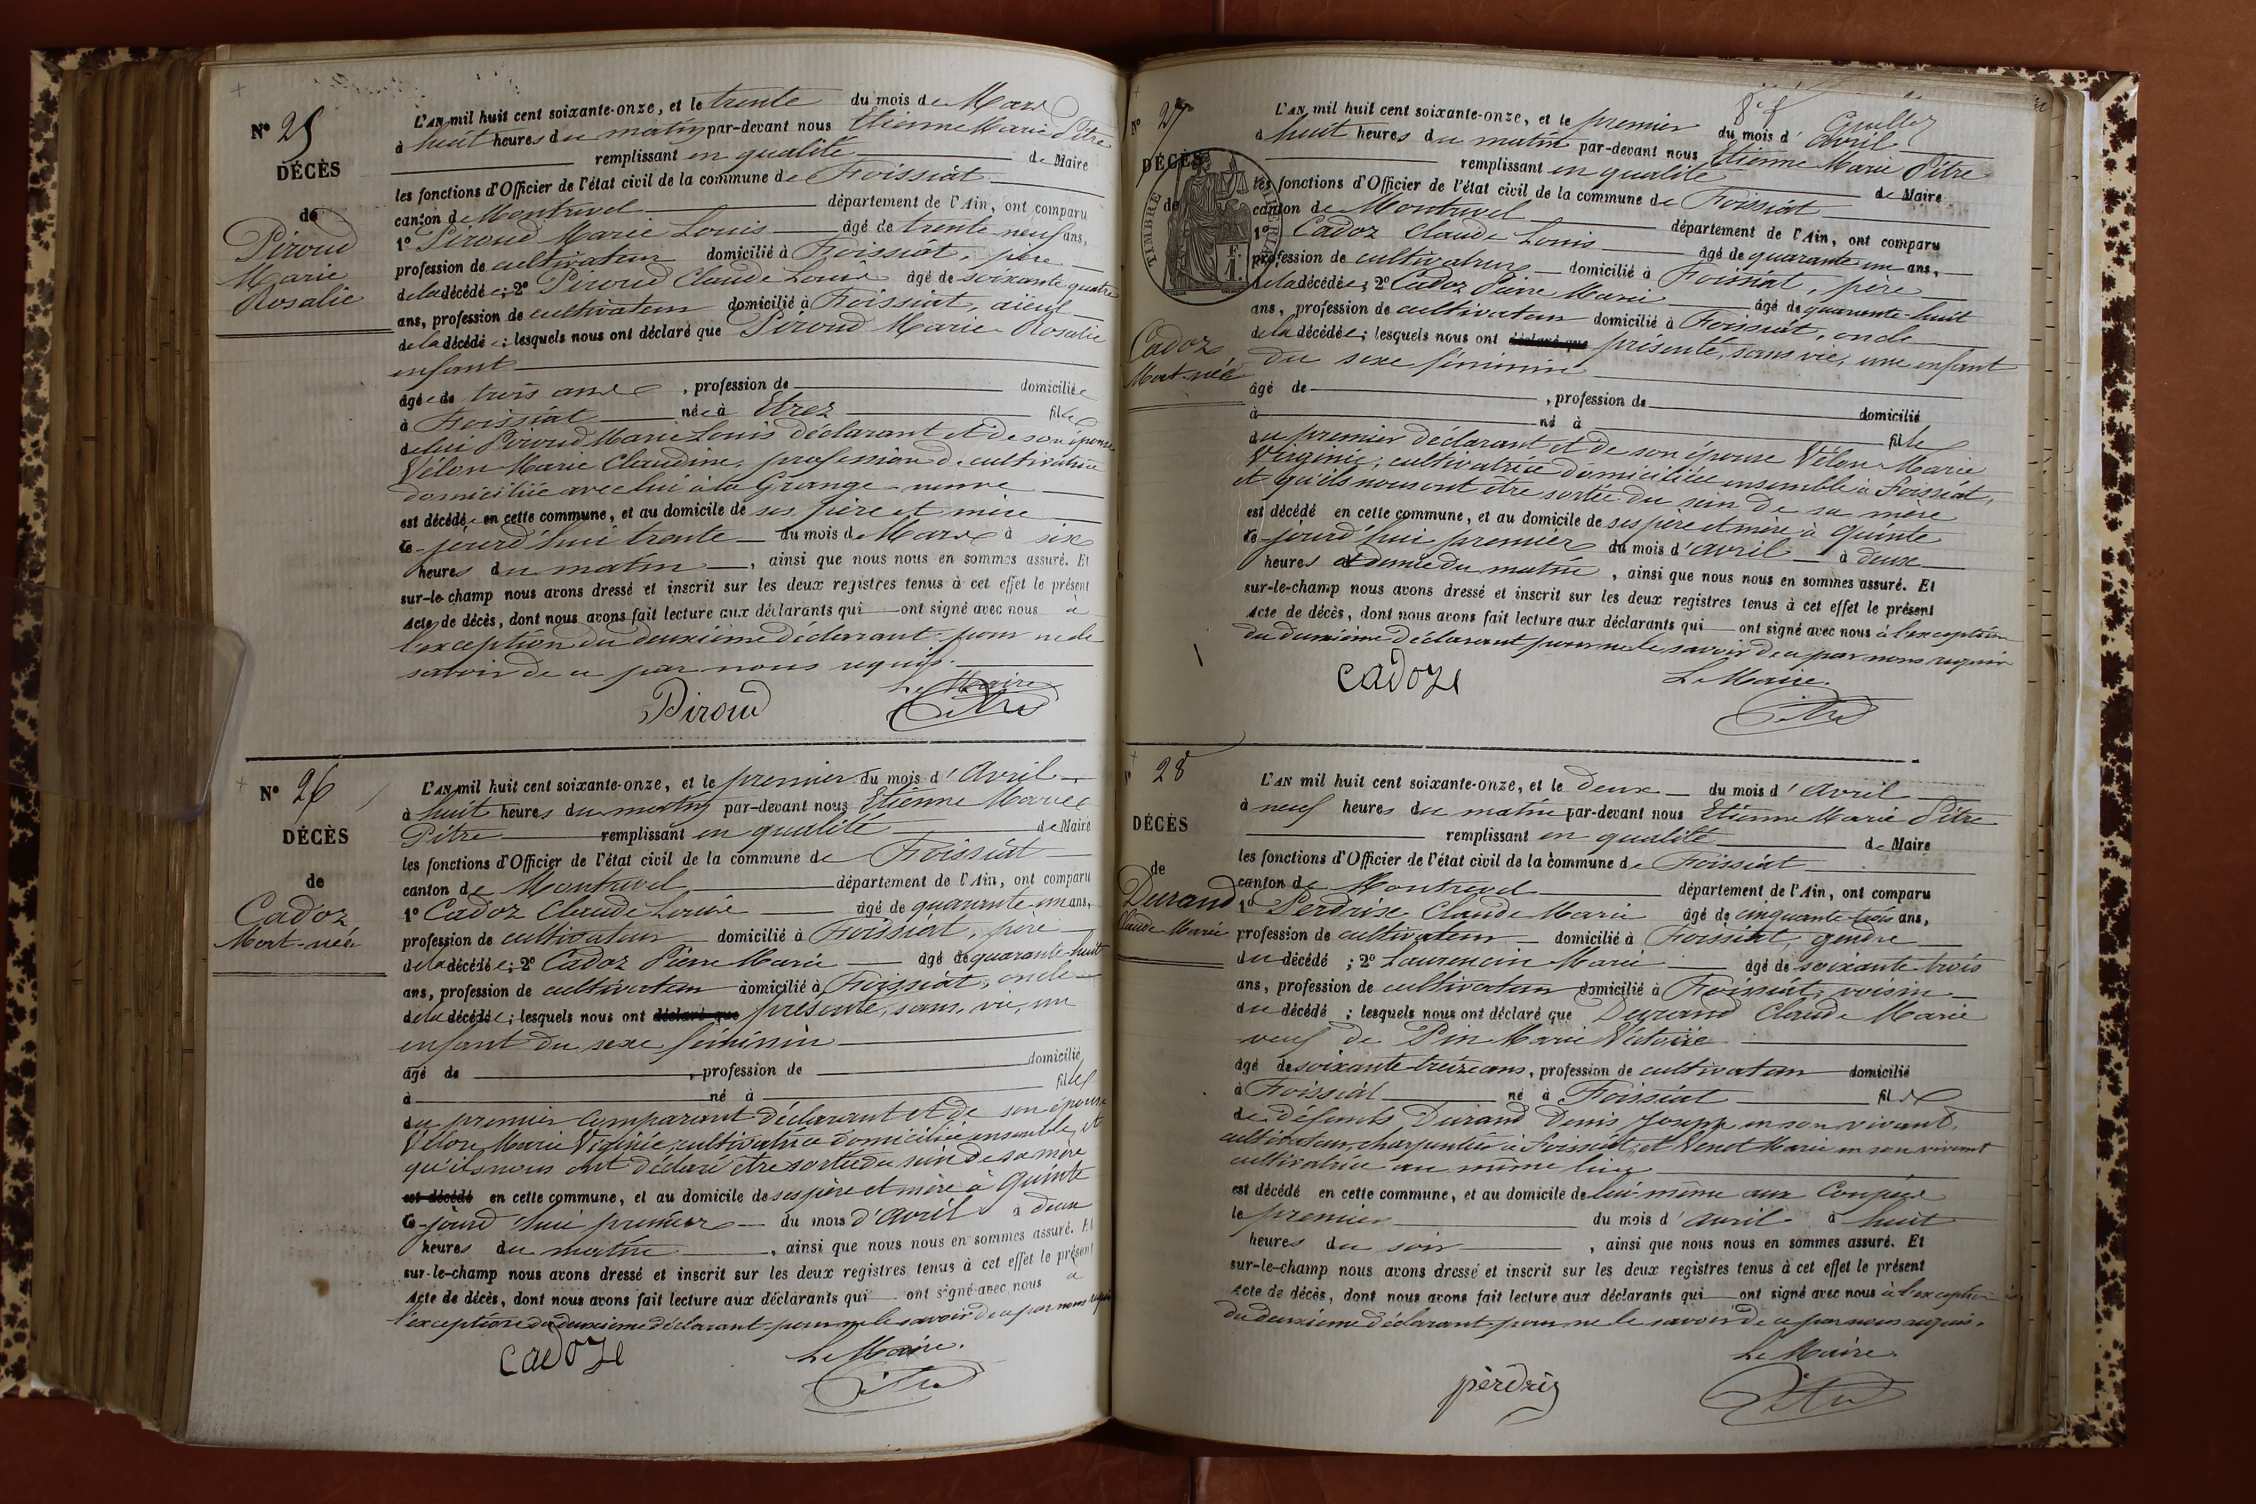 N° 25
DÉCÈS
de
Piroud
Marie
Rosalie
L'AN mil huit cent soixante-onze, et le trente du mois de Mars
à huit heures du matin par-devant nous Etienne Marie Pitre
remplissant en qualité de Maire
les fonctions d'Officier de l'état civil de la commune de Foissiat
canton de Montrevel département de l'Ain, ont comparu
1° Piroud Marie Louis âgé de trente neuf ans,
profession de cultivateur domicilié à Foissiat, père
de la décédée; 2° Piroud Claude Louis âgé de soixante quatre
ans, profession de cultivateur domicilié à Foissiat, aïeul
de la décédée; lesquels nous ont déclaré que Piroud Marie Rosalie
enfant
âgée de trois ans, profession de domiciliée
à Foissiat née à Etrez fille
de lui Piroud Marie Louis déclarant et de son épouse
Vélon Marie Claudine, profession de cultivatrice
domiciliée avec lui à la Grange-neuve
est décédée en cette commune, et au domicile de ses père et mère
ce-jourd'hui trente du mois de Mars à six
heures du matin, ainsi que nous nous en sommes assuré. Et
sur-le-champ nous avons dressé et inscrit sur les deux registres tenus à cet effet le présent
Acte de décès, dont nous avons fait lecture aux déclarants qui ont signé avec nous à
l'exception du deuxième déclarant pour ne le
savoir de ce par nous requis.
Le Maire
Piroud Pitre
N° 26
DÉCÈS
de
Cadoz
Mort-née
L'AN mil huit cent soixante-onze, et le premier du mois d'Avril
à huit heures du matin par-devant nous Etienne Marie
Pitre remplissant en qualité de Maire
les fonctions d'Officier de l'état civil de la commune de Foissiat
canton de Montrevel département de l'Ain, ont comparu
1° Cadoz Claude Louis âgé de quarante-un ans,
profession de cultivateur domicilié à Foissiat, père
de la décédée; 2° Cadoz Pierre Marie âgé de quarante-huit
ans, profession de cultivateur domicilié à Foissiat, oncle
de la décédée; lesquels nous ont déclaré que présenté, sans vie, un
enfant du sexe féminin
âgé de , profession de domicilié
à né à fille
du premier comparant déclarant et de son épouse
Vélon Marie Virginie, cultivatrice domiciliée ensemble, et
qu'ils nous ont déclaré être sortie du sein de sa mère
est décédé en cette commune, et au domicile de ses père et mère à Quinte
ce-jourd'hui premier du mois d'avril à deux
heures du matin, ainsi que nous nous en sommes assuré. Et
sur-le-champ nous avons dressé et inscrit sur les deux registres tenus à cet effet le présent
Acte de décès, dont nous avons fait lecture aux déclarants qui ont signé avec nous à
l'exception du deuxième déclarant pour ne le savoir de ce par nous requis
Le Maire.
Cadoz Pitre
N° 27
DÉCÈS
de
TIMBRE
Cadoz
Mort-née
L'AN mil huit cent soixante-onze, et le premier du mois d'Avril
à huit heures du matin par-devant nous Etienne Marie Pitre
remplissant en qualité de Maire
les fonctions d'Officier de l'état civil de la commune de Foissiat
canton de Montrevel département de l'Ain, ont comparu
1° Cadoz Claude Louis âgé de quarante un ans,
profession de cultivateur domicilié à Foissiat, père
de la décédée; 2° Cadoz Pierre Marie âgé de quarante-huit
ans, profession de cultivateur domicilié à Foissiat, oncle
de la décédée; lesquels nous ont déclaré que présenté, sans vie, une enfant
du sexe féminin
âgé de , profession de domicilié
à né à fille
du premier déclarant et de son épouse Vélon Marie
Virginie, cultivatrice domiciliée ensemble à Foissiat,
et qu'ils nous ont être sortie du sein de sa mère
est décédé en cette commune, et au domicile de ses père et mère à Quinte
ce-jourd'hui premier du mois d'avril à deux
heures et demie du matin, ainsi que nous nous en sommes assuré. Et
sur-le-champ nous avons dressé et inscrit sur les deux registres tenus à cet effet le présent
Acte de décès, dont nous avons fait lecture aux déclarants qui ont signé avec nous à l'exception
du deuxième déclarant pour ne le savoir de ce par nous requis
Le Maire.
Cadoz Pitre
28
DÉCÈS
de
Durand
Claude Marie
L'AN mil huit cent soixante-onze, et le deux du mois d'Avril
à neuf heures du matin par-devant nous Etienne Marie Pitre
remplissant en qualité de Maire
les fonctions d'Officier de l'état civil de la commune de Foissiat
canton de Montrevel département de l'Ain, ont comparu
1° Perdrix Claude Marie âgé de cinquante-trois ans,
profession de cultivateur domicilié à Foissiat, gendre
du décédé; 2° Laurencin Marie âgé de soixante trois
ans, profession de cultivateur domicilié à Foissiat, voisin
du décédé; lesquels nous ont déclaré que Durand Claude Marie
veuf de Pin Marie Victoire
âgé de soixante-treize ans, profession de cultivateur domicilié
à Foissiat né à Foissiat fils
de défunts Durand Denis Joseph en son vivant,
cultivateur, charpentier à Foissiat, et Venet Marie en son vivant
cultivatrice au même lieu
est décédé en cette commune, et au domicile de lui-même aux Coupées
le premier du mois d'avril à huit
heures du soir, ainsi que nous nous en sommes assuré. Et
sur-le-champ nous avons dressé et inscrit sur les deux registres tenus à cet effet le présent
Acte de décès, dont nous avons fait lecture aux déclarants qui ont signé avec nous à l'exception
du deuxième déclarant pour ne le savoir de ce par nous requis.
Le Maire.
perdrix Pitre